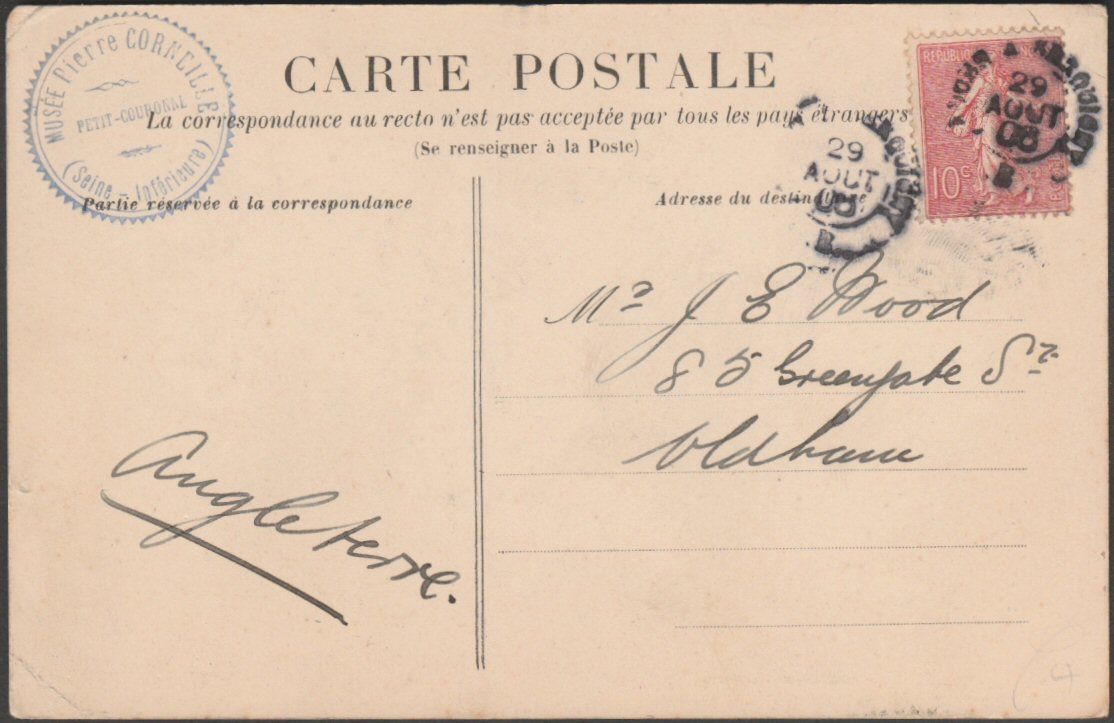 MUSÉE Pierre CORNEILLE
PETIT-COURONNE
(Seine - Inférieure)
CARTE POSTALE
La correspondance au recto n'est pas acceptée par tous les pays étrangers
(Se renseigner à la Poste)
Partie réservée à la correspondance
Adresse du destinataire
REPUBLIQUE FRANÇAISE
10c
29
AOUT
08
B
29
AOUT
08
B
Mr J E Wood
85 Greengate St
Oldham
Angleterre.
4